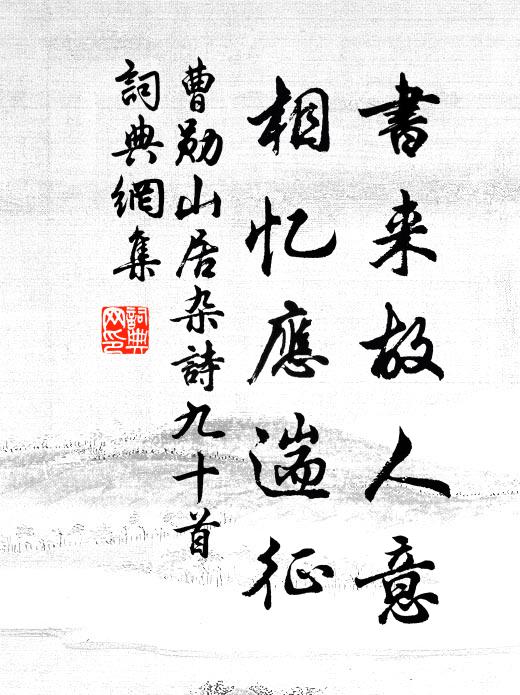 書来故人意
相忆應遄征
曹勋山居杂詩九十首
詞典網集
詞典网印